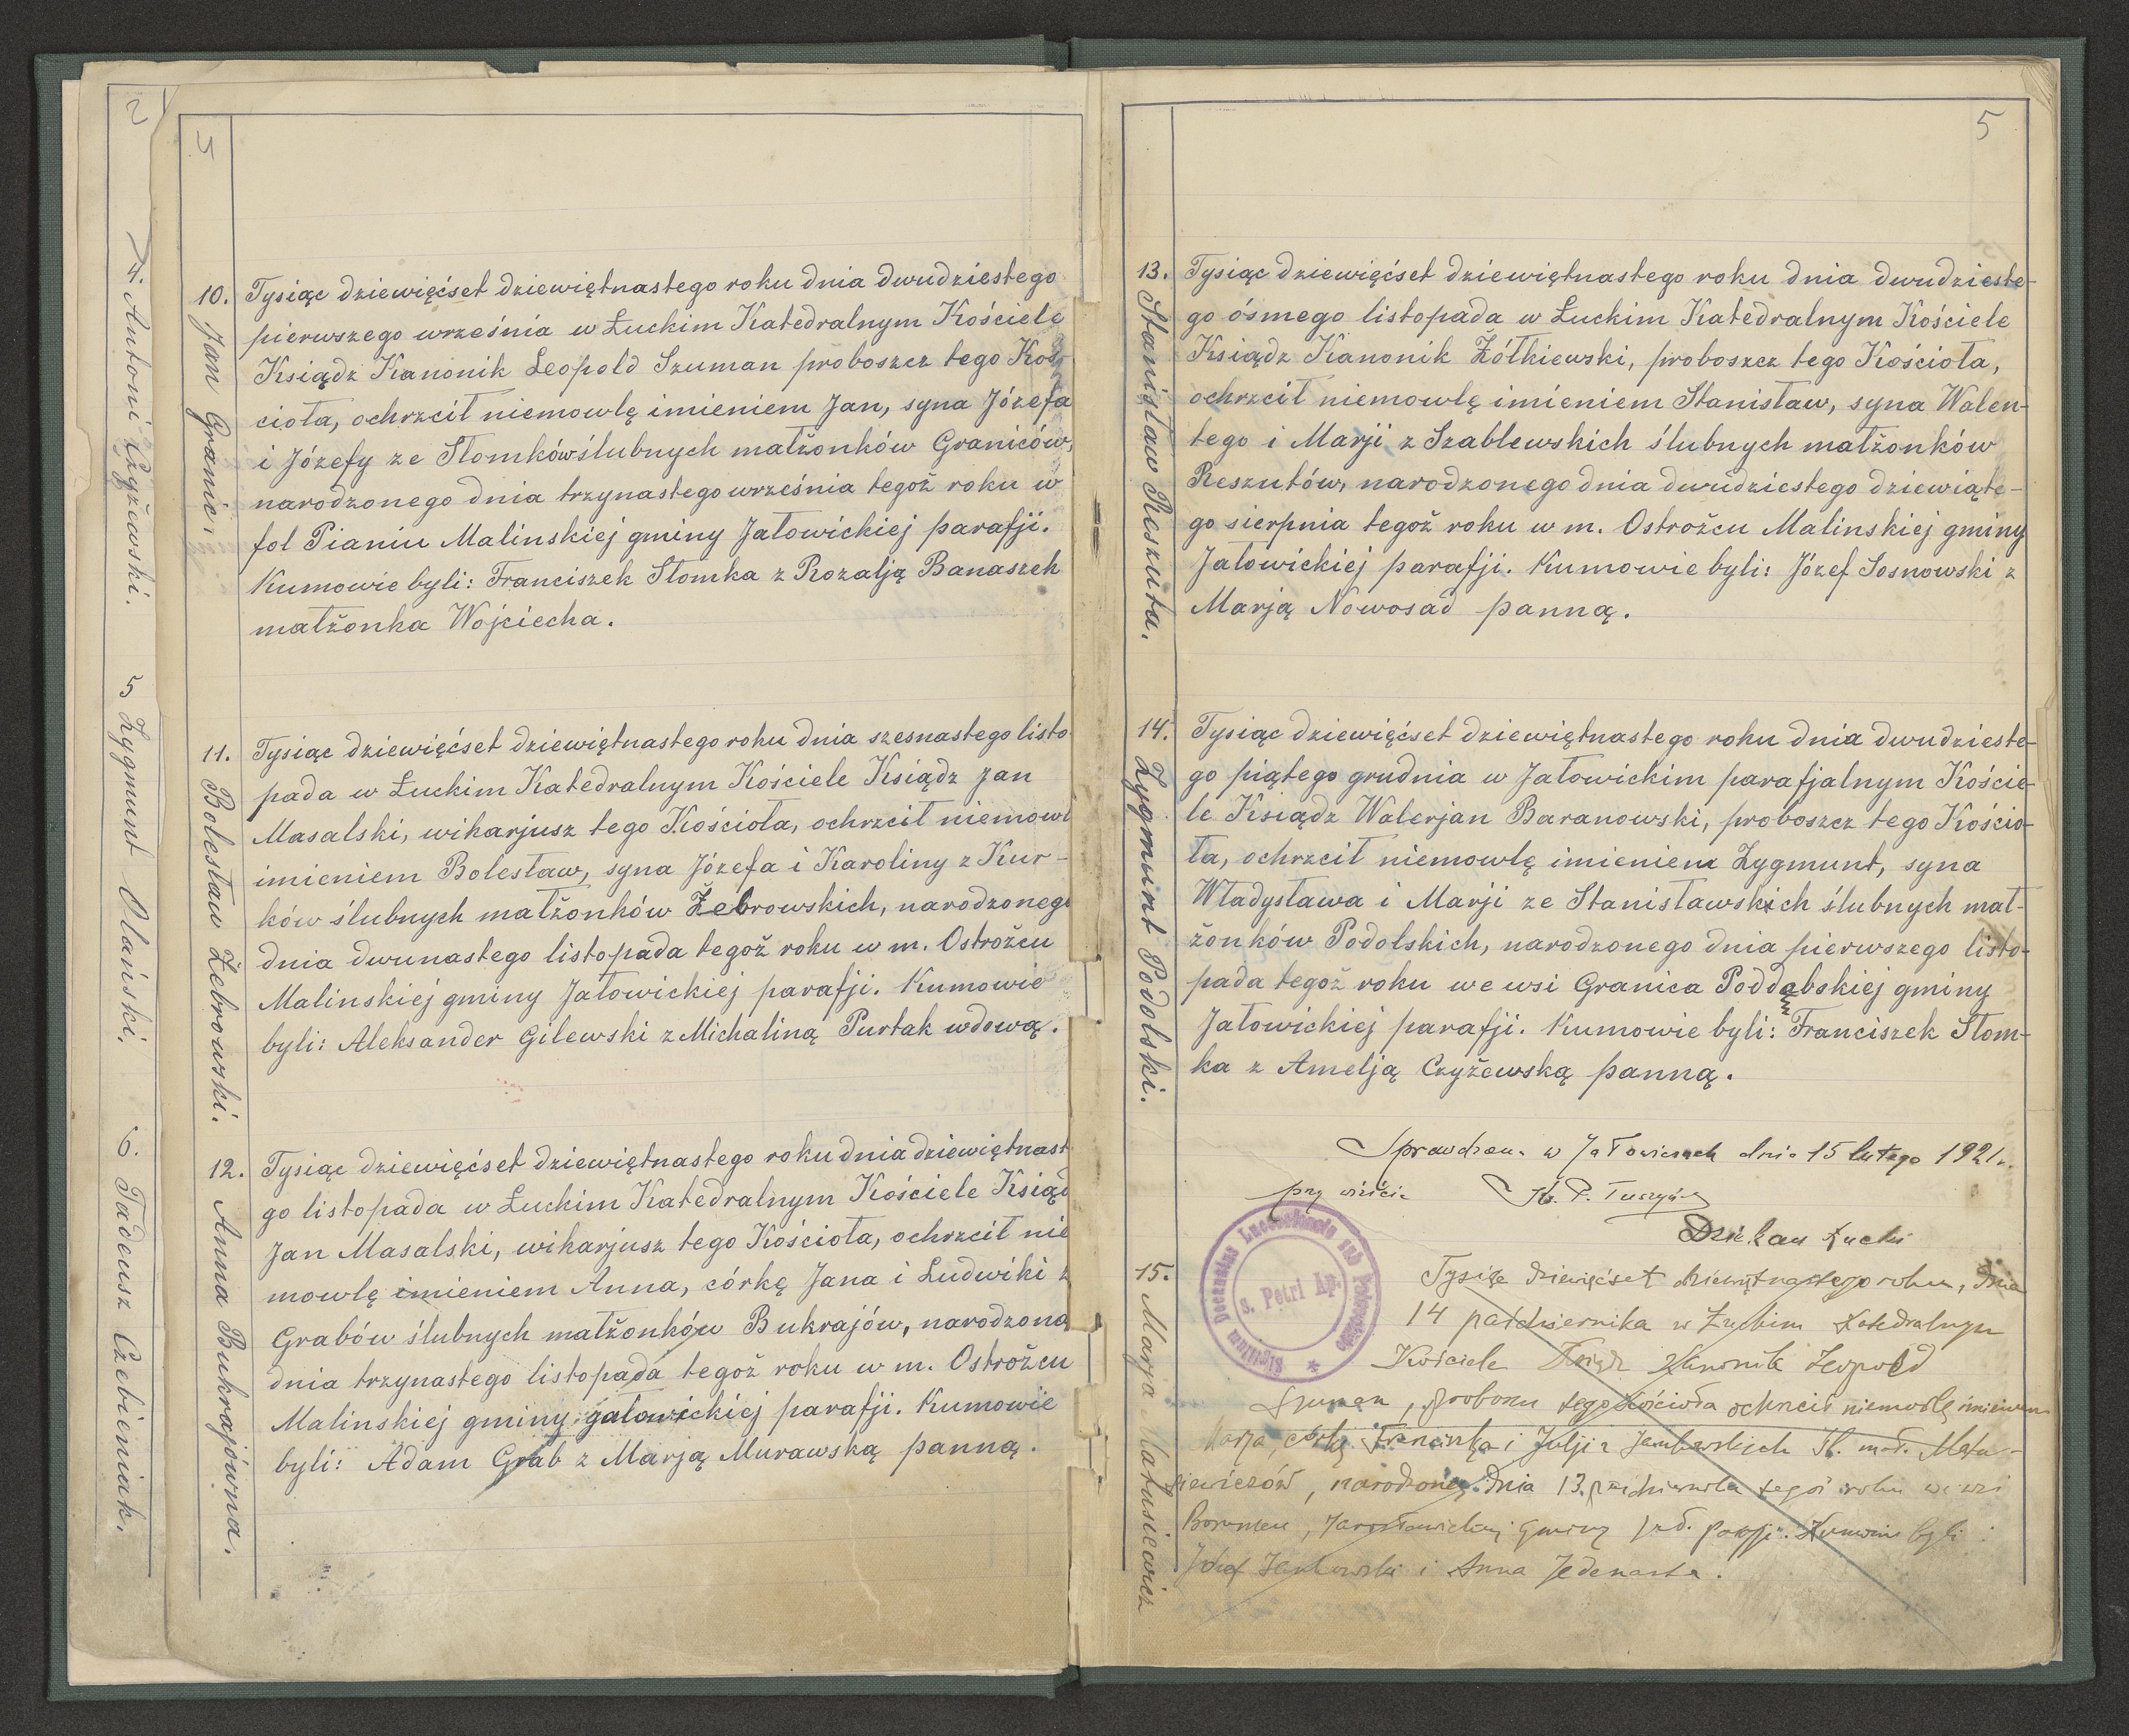 2
4. Antoni Czyżewski.
5 Zygmunt Olański.
6. Tadeusz Czebieniak.
4
10. Jan Granic.
Tysiąc dziewięćset dziewiętnastego roku dnia dwudziestego
pierwszego września w Łuckim Katedralnym Kościele
Ksiądz Kanonik Leopold Szuman proboszcz tego Koś-
cioła, ochrzcił niemowlę imieniem Jan, syna Józefa
i Józefy ze Słomków ślubnych małżonków Graniców,
narodzonego dnia trzynastego września tegoż roku w
fol Pianiu Malinskiej gminy Jałowickiej parafji.
Kumowie byli: Franciszek Słomka z Rozalją Banaszek
małżonka Wojciecha.
11. Bolesław Żebrowski.
Tysiąc dziewięćset dziewiętnastego roku dnia szesnastego listo
pada w Łuckim Katedralnym Kościele Ksiądz Jan
Masalski, wikarjusz tego Kościoła, ochrzcił niemowl
imieniem Bolesław, syna Józefa i Karoliny z Kur-
ków ślubnych małżonków Żebrowskich, narodzonego
dnia dwunastego listopada tegoż roku w m. Ostrożcu
Malinskiej gminy Jałowickiej parafji. Kumowie
byli: Aleksander Gilewski z Michaliną Purtak wdową.
12. Anna Bukrajówna.
Tysiąc dziewięćset dziewiętnastego roku dnia dziewiętnast
go listopada w Łuckim Katedralnym Kościele Ksiąd
Jan Masalski, wikarjusz tego Kościoła, ochrzcił nie
mowlę imieniem Anna, córkę Jana i Ludwiki z
Grabów ślubnych małżonków Bukrajów, narodzoną
dnia trzynastego listopada tegoż roku w m. Ostrożcu
Malinskiej gminy, jałowickiej parafji. Kumowie
byli: Adam Grab z Marją Murawską panną.
5
13. Stanisław Reszuta.
Tysiąc dziewięćset dziewiętnastego roku dnia dwudzieste-
go ósmego listopada w Łuckim Katedralnym Kościele
Ksiądz Kanonik Żółkiewski, proboszcz tego Kościoła,
ochrzcił niemowlę imieniem Stanisław, syna Walen-
tego i Marji z Szablewskich ślubnych małżonków
Reszutów, narodzonego dnia dwudziestego dziewiąte-
go sierpnia tegoż roku w m. Ostrożcu Malinskiej gminy
Jałowickiej parafji. Kumowie byli: Józef Sosnowski z
Marją Nowosad panną.
14. Zygmunt Podolski.
Tysiąc dziewięćset dziewiętnastego roku dnia dwudzieste-
go piątego grudnia w Jałowickim parafjalnym Koście-
le Ksiądz Walerjan Baranowski, proboszcz tego Kościo-
ła, ochrzcił niemowlę imieniem Zygmunt, syna
Władysława i Marji ze Stanisławskich ślubnych mał-
żonków Podolskich, narodzonego dnia pierwszego listo-
pada tegoż roku we wsi Granica Poddębskiej gminy
Jałowickiej parafji. Kumowie byli: Franciszek Słom-
ka z Amelją Czyżewską panną.
Sprawdzono w Jałowiczach dnia 15 lutego 1921 r.
przy wizycie Ks. P.
Dziekan Łucki
Sigillum Decanatus Luceoriensis sub Patrocinio
s. Petri Ap.
15. Marja Matusiewicz
Tysiąc dziewięćset dziewiętnastego roku, dnia
14 października w Łuckim Katedralnym
Kościele Ksiądz Kanonik Leopold
Szuman, proboszcz tego Kościoła ochrzcił niemowlę imieniem
Marja, córkę Franciszka i Julji z śl. mał. Matu-
siewiczów, narodzoną dnia 13. października tegoż roku we wsi
Boremcu, Jarosławickiej gminy Jał. parafji. Kumowie byli:
Józef i Anna Jedenasta.